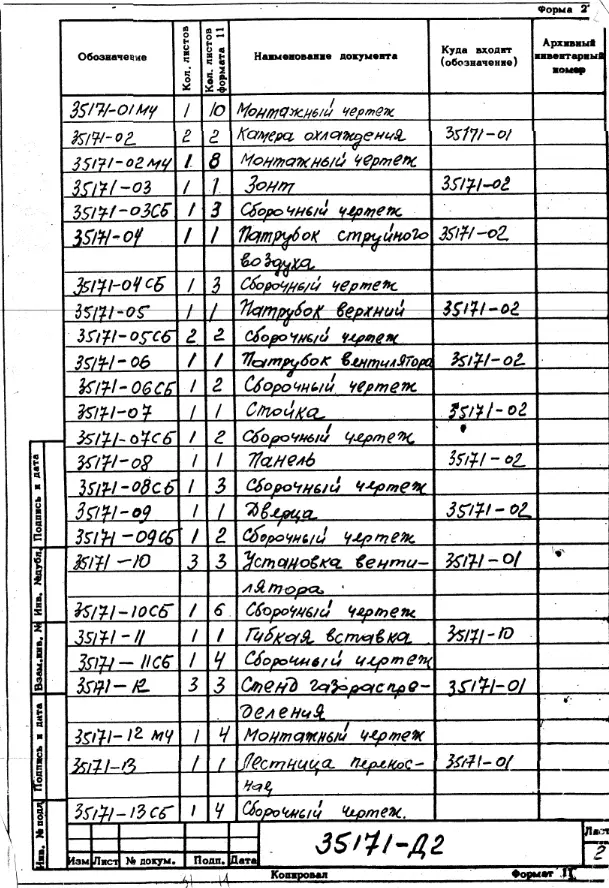 Форма 2
Обозначение Кол. листов Кол. листов формата 11 Наименование документа Куда входит (обозначение) Архивный инвентарный номер
35171-01МЧ 1 10 Монтажный чертеж
35171-02 2 2 Камера охлаждения 35171-01
35171-02МЧ 1 8 Монтажный чертеж
35171-03 1 1 Зонт 35171-02
35171-03СБ 1 3 Сборочный чертеж
35171-04 1 1 Патрубок струйного 35171-02
воздуха
35171-04СБ 1 3 Сборочный чертеж
35171-05 1 1 Патрубок верхний 35171-02
35171-05СБ 2 2 Сборочный чертеж
35171-06 1 1 Патрубок вентилятора 35171-02
35171-06СБ 1 2 Сборочный чертеж
35171-07 1 1 Стойка 35171-02
35171-07СБ 1 2 Сборочный чертеж
35171-08 1 1 Панель 35171-02
35171-08СБ 1 3 Сборочный чертеж
35171-09 1 1 Дверца 35171-02
35171-09СБ 1 2 Сборочный чертеж
35171-10 3 3 Установка венти- 35171-01
лятора
35171-10СБ 1 6 Сборочный чертеж
35171-11 1 1 Гибкая вставка 35171-10
35171-11СБ 1 4 Сборочный чертеж
35171-12 3 3 Стенд газораспре- 35171-01
деления
35171-12 МЧ 1 4 Монтажный чертеж
35171-13 1 1 Лестница перекос- 35171-01
ная
35171-13СБ 1 4 Сборочный чертеж.
Подпись и дата
Инв. №дубл.
Взам.инв. №
Подпись и дата
Инв. № подл.
35171-Д2
Лист
2
Изм Лист № докум. Подп. Дата
Копировал Формат 11